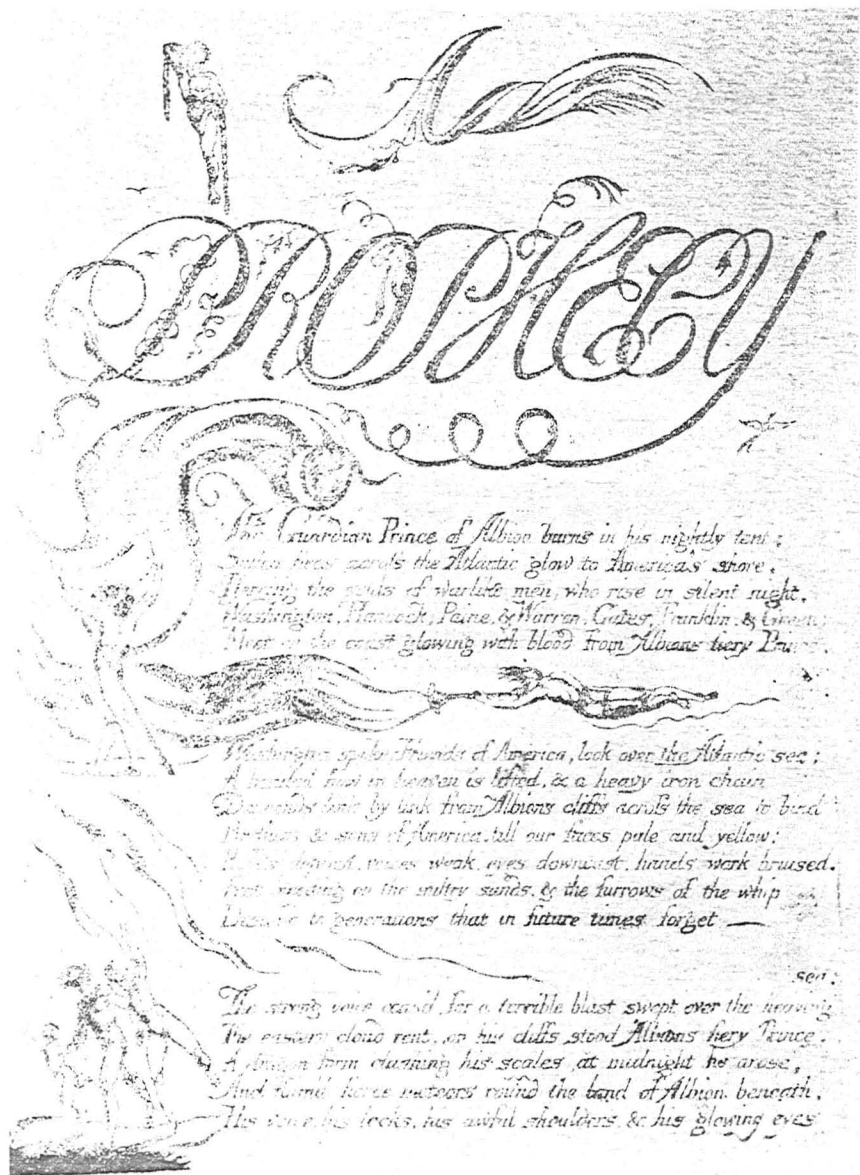 A
PROPHECY
The Guardian Prince of Albion burns in his nightly tent;
Sullen fires across the Atlantic glow to America's shore,
Piercing the souls of warlike men, who rise in silent night.
Washington, Hancock, Paine, & Warren, Gates, Franklin, & Green
Meet on the coast glowing with blood from Albions fiery Prince.
Washington spoke; Friends of America, look over the Atlantic sea;
A bended bow in heaven is lifted, & a heavy iron chain
Descends link by link from Albions cliffs across the sea to bind
Brothers & sons of America, till our faces pale and yellow;
Heads deprest, voices weak, eyes downcast, hands work bruised,
Feet bleeding on the sultry sands, & the furrows of the whip
Descend to generations that in future times forget —
sea;
The strong voice ceas'd; for a terrible blast swept over the heaving
The eastern cloud rent, on his cliffs stood Albions fiery Prince,
A dragon form clashing his scales at midnight he arose,
And flam'd fierce meteors round the band of Albion beneath,
His voice, his locks, his awful shoulders & his glowing eyes